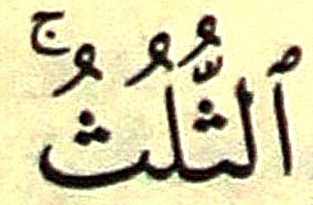 ٱلثُّلُثُۚ